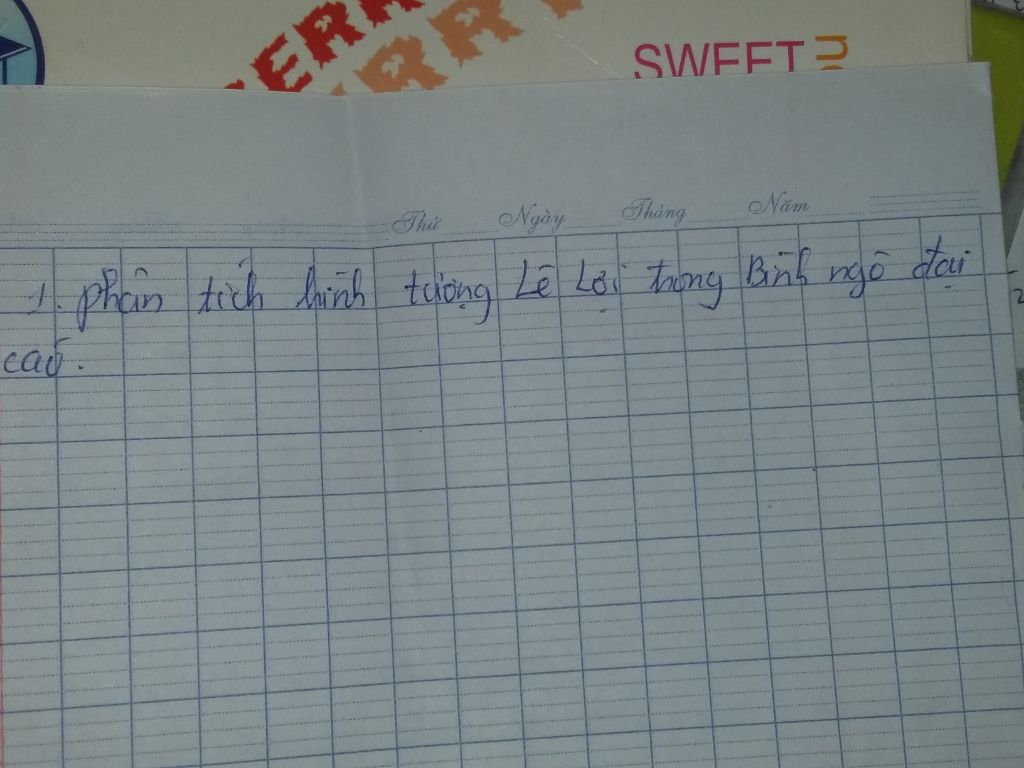 SWEET
Thứ Ngày Tháng Năm
1. phân tích hình tượng Lê Lợi trong Bình ngô đại
cáo.